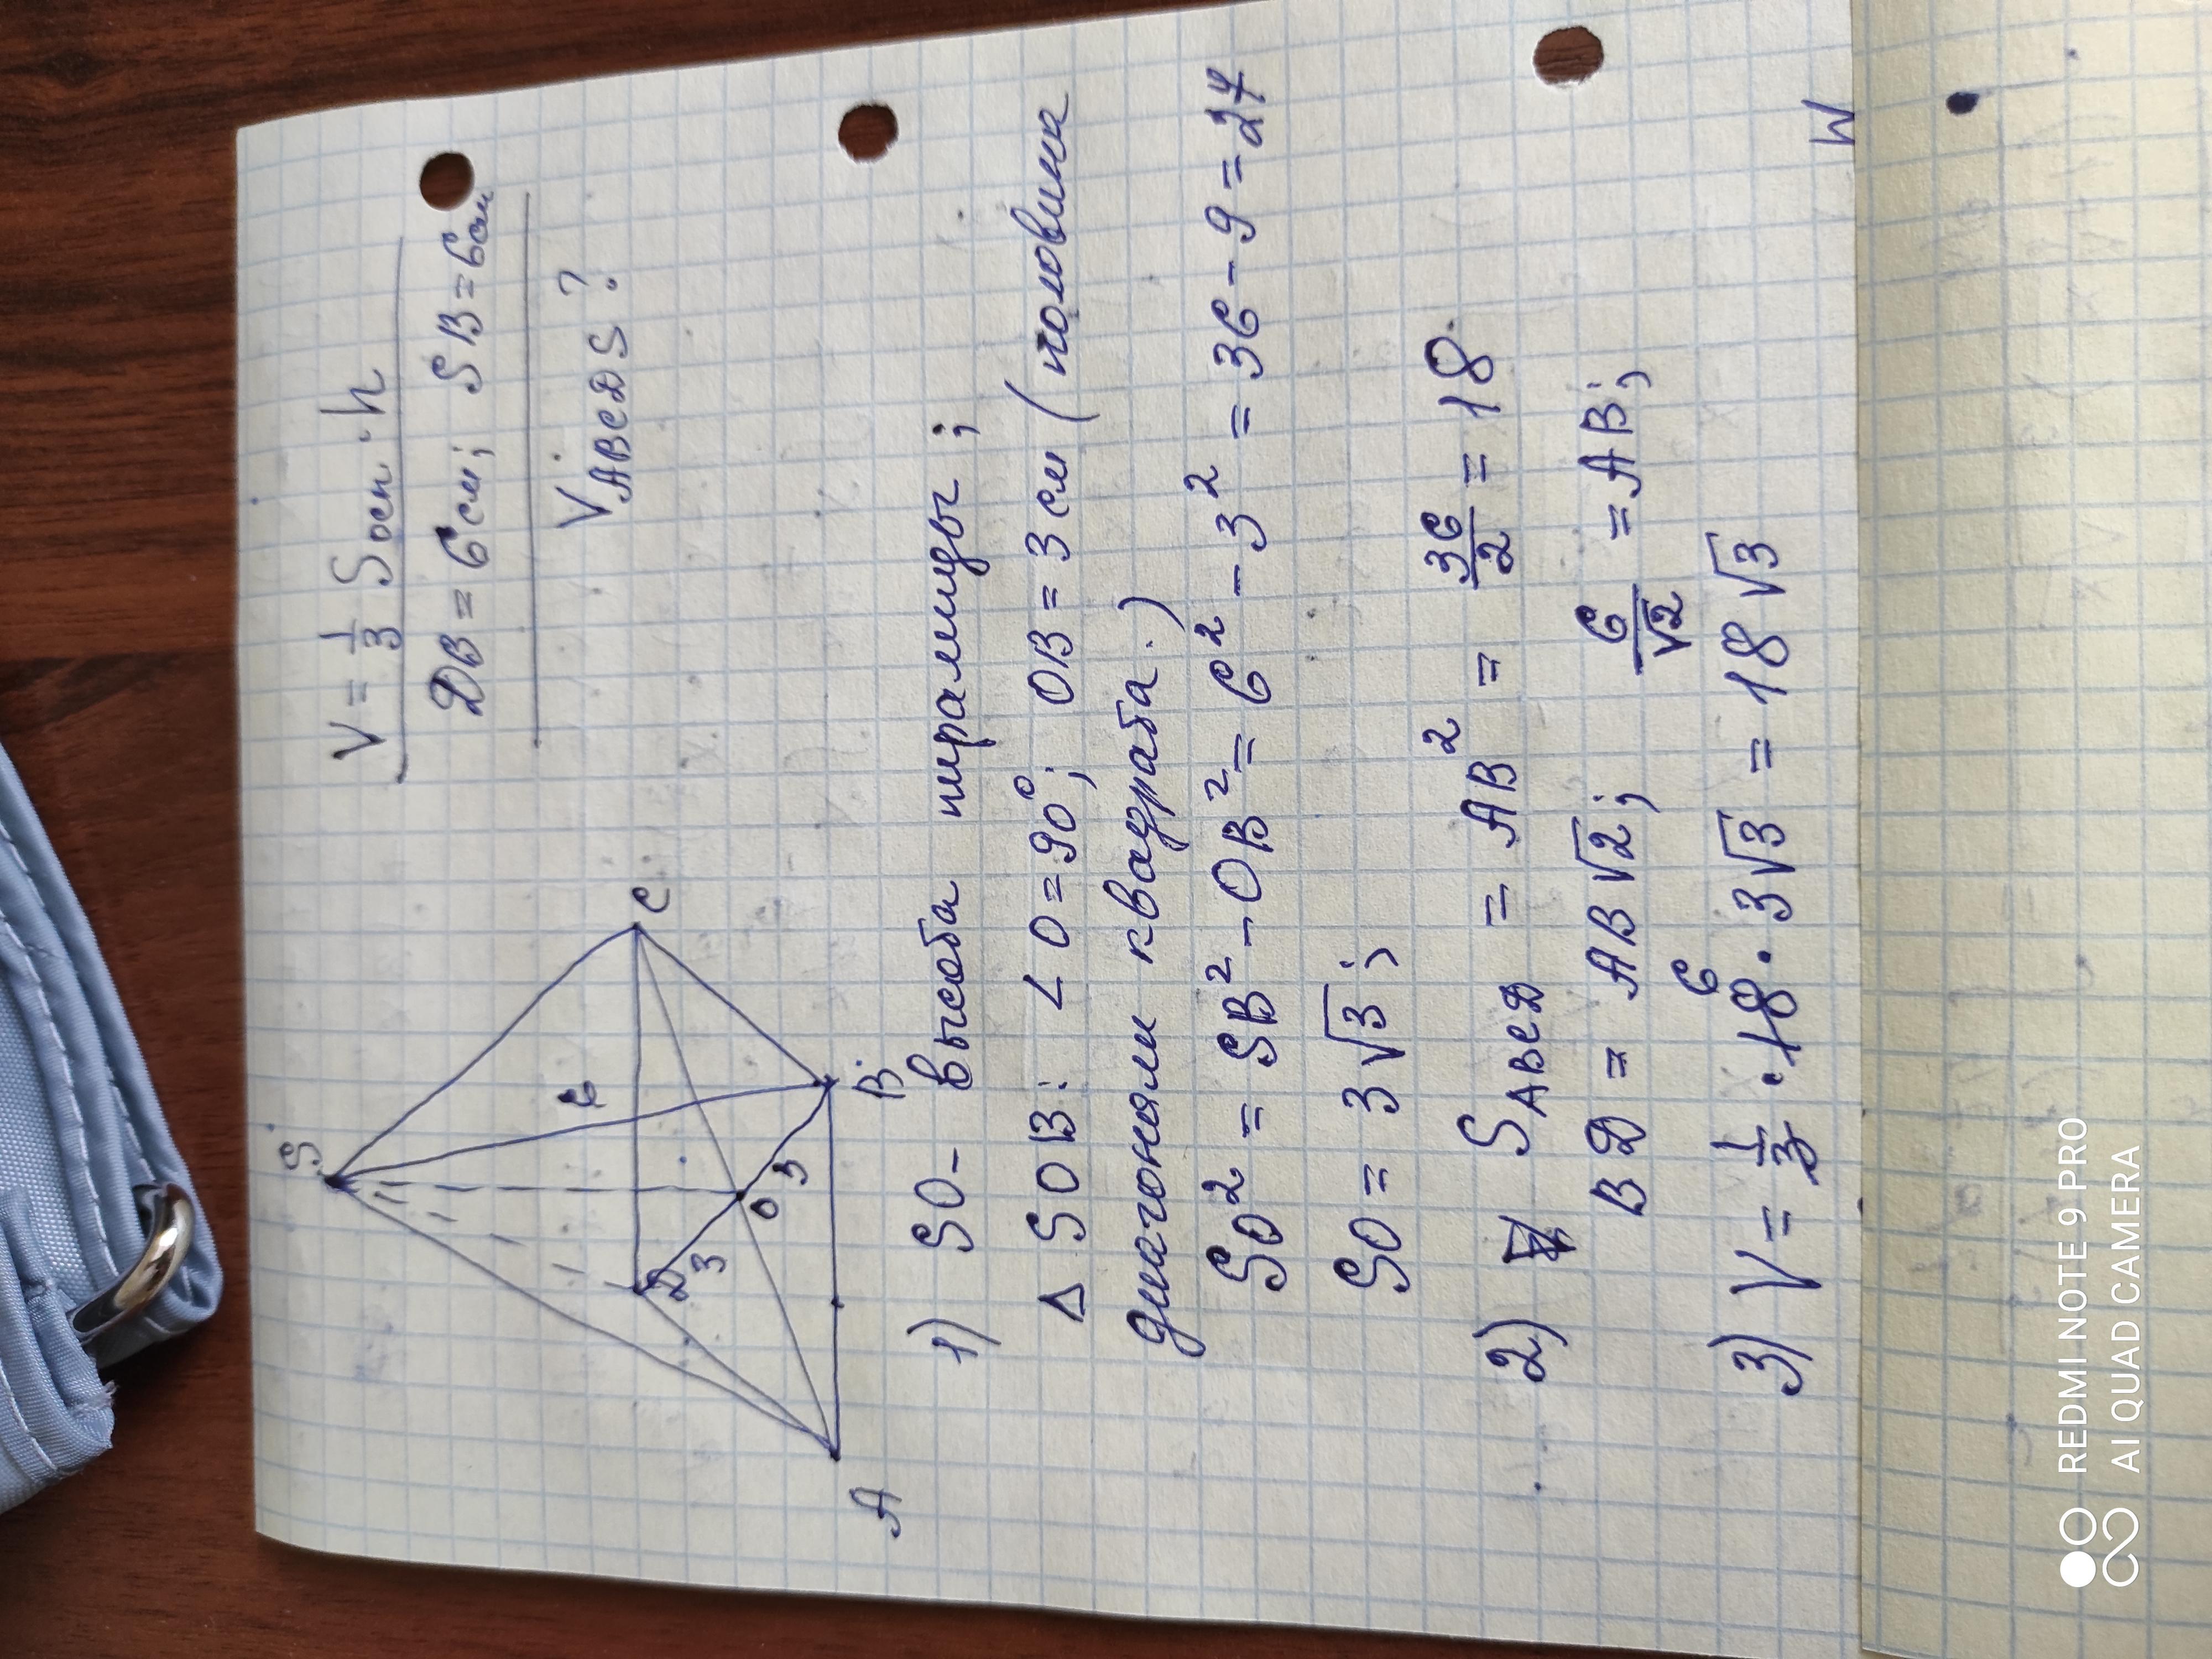 V = 1/3 Sосн · h
DB = 6 см; SB = 6 см
V ABCDS ?
S
6
C
D
3
O
3
A
B
1) SO - высота пирамиды;
Δ SOB: ∠O = 90°; OB = 3 см (половина
диагонали квадрата.)
SO² = SB² - OB² = 6² - 3² = 36 - 9 = 27
SO = 3√3;
2) S ABCD = AB² = 36/2 = 18
BD = AB√2; 6/√2 = AB;
6
3) V = 1/3 · 18 · 3√3 = 18√3
REDMI NOTE 9 PRO
AI QUAD CAMERA